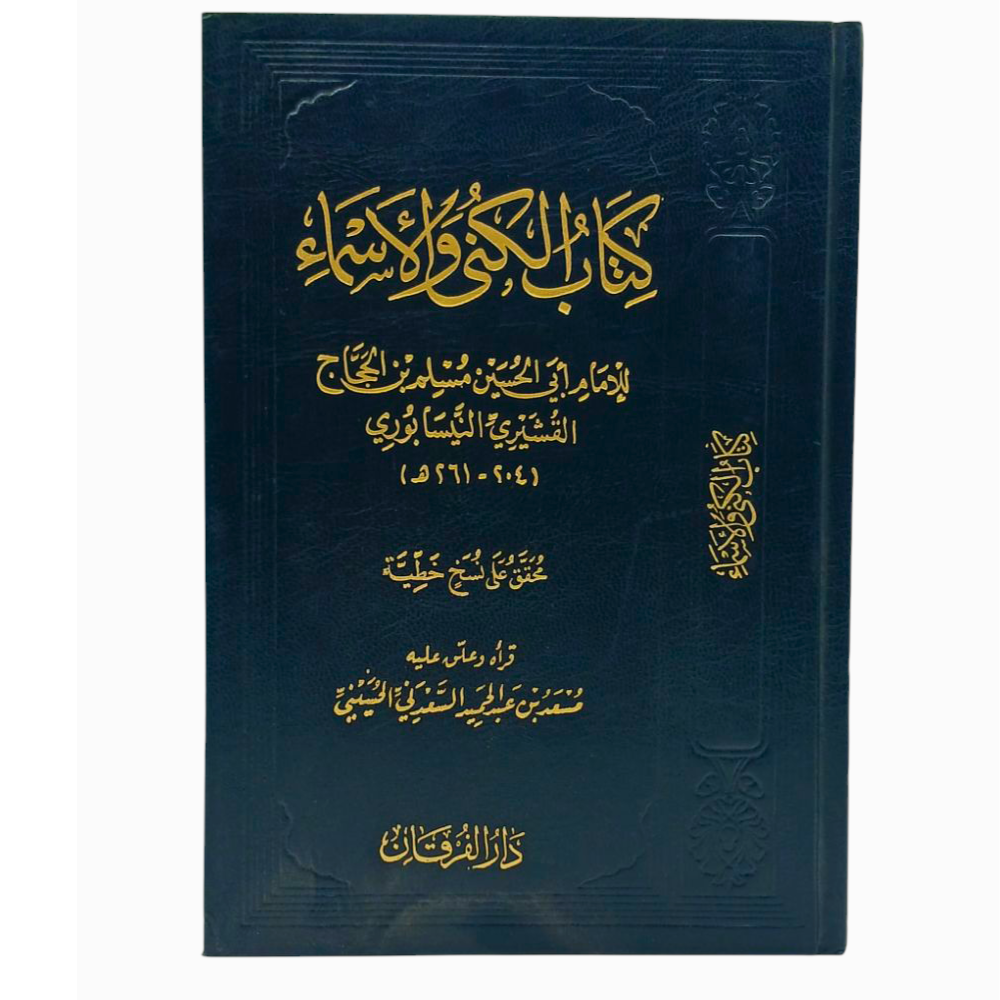 كِتَابُ الكُنَى وَالأَسْمَاءِ
لِلإِمَامِ أَبِي الحُسَيْنِ مُسْلِم بْنِ الحَجَّاج
القُشَيْرِيِّ النَّيْسَابُورِي
(٢٠٤ - ٢٦١ هـ)
مُحَقَّقٌ عَلَى نُسَخٍ خَطِّيَّة
قرأه وعلق عليه
مُسْعَدُ بْنُ عَبْدِ الحَمِيدِ السَّعْدَنِيِّ الحُسَيْنِيِّ
دَارُ الفُرْقَان
كِتَابُ الكُنَى وَالأَسْمَاءِ